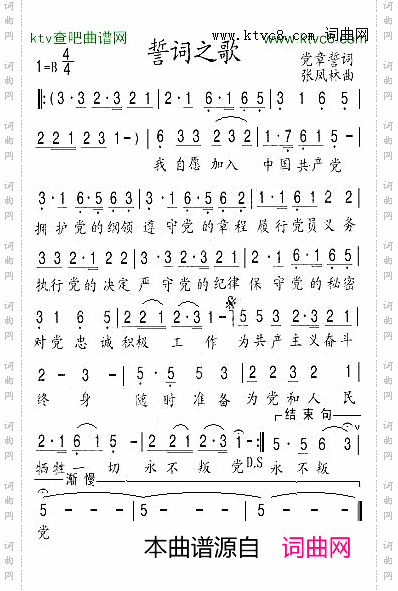 ktv查吧曲谱网
www.ktvc8.com 词曲网
www.ktvc8.com
誓词之歌
1=B 4/4
党章誓词
张凤林曲
‖:(3·3 2·3 2 1 | 2·1 6·1 6·5 | 3 1 6 5 |
2 2 1 2 3 1 -) | 6 3 3 2 3 2 | 1·7 6 1 5 |
我自愿加入 中国共产党
3·1 6·5 6 3 | 3·1 2·3 2 1 | 2·1 6·1 2 2 |
拥护党的纲领 遵守党的章程 履行党员义务
3·3 3 2·1 2 | 2·3 1 2·3 1 | 2·1 2·3 5 5 |
执行党的决定 严守党的纪律 保守党的秘密
3 1 6 5 | 2 2 1 2·3 1 | 5 5 3 2 3 5 5 |
对党忠诚积极 工作 为共产主义奋斗
2 - 3 - | 5·5 1 2 | 3 2 3 2 1 |
终身 随时准备为党和人民
结束句
2·1 6 1 5 - | 2 2 2 1 2·3 1 - :‖ 5·5 6 3 |
牺牲一切 永不叛党 D.S 永不叛
渐慢
5 - - - | 5 - - - | 5 - - - ‖
党
本曲谱源自 词曲网
词曲网